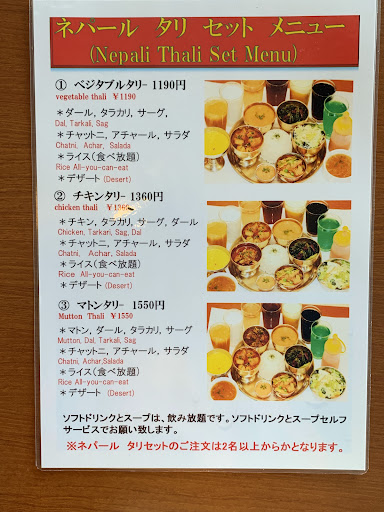 ネパール タリ セット メニュー
(Nepali Thali Set Menu)
① ベジタブルタリｰ 1190円
vegetable thali ￥1190
＊ダール, タラカリ, サーグ,
Dal, Tarkali, Sag
＊チャットニ, アチャール, サラダ
Chatni, Achar, Salada
＊ライス(食べ放題)
Rice All-you-can-eat
＊デザート (Desert)
② チキンタリｰ 1360円
chicken thali ￥1360
＊チキン, タラカリ, サーグ, ダール
Chicken, Tarkari, Sag, Dal
＊チャットニ, アチャール, サラダ
Chatni, Achar, Salada
＊ライス(食べ放題)
Rice All-you-can-eat
＊デザート (Desert)
③ マトンタリｰ 1550円
Mutton Thali ￥1550
＊マトン, ダール, タラカリ, サーグ
Mutton, Dal, Tarkali, Sag
＊チャットニ, アチャール, サラダ
Chatni, Achar,Salada
＊ライス(食べ放題)
Rice All-you-can-eat
＊デザート (Desert)
ソフトドリンクとスープは、飲み放題です。ソフトドリンクとスープセルフ
サービスでお願い致します。
※ネパール タリセットのご注文は2名以上からかとなります。